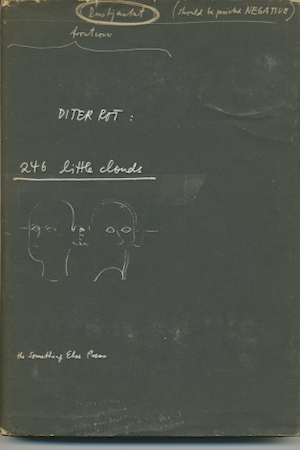 Dustjacket (should be printed NEGATIVE)
frontcover
DITER ROT :
246 little clouds
the Something Else Press